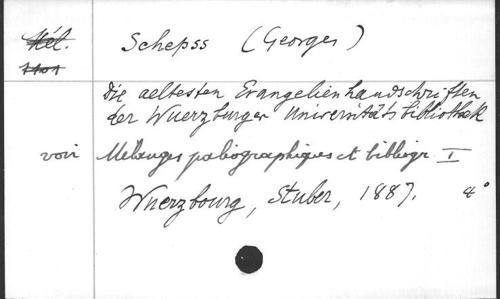 Mél. Schepss (Georges)
Die aeltesten Evangelienhandschriften
der Wuerzburger Universitätsbibliothek
voir Mélanges paléographiques et bibliogr I
Wuerzbourg, Stuber, 1887. 4°